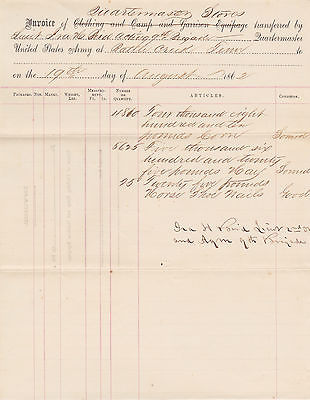 Quartermaster Stores
Invoice of Clothing and Camp and Garrison Equipage transferred by
Lieut Ira H. Acting 9th Brigade Quartermaster
United States Army at Battle Creek Tenn to
on the 19th day of August 1862
PACKAGES. NOS. MARKS. WEIGHT, LBS. MEASUREMENT, Ft. In. NUMBER OR QUANTITY. ARTICLES. CONDITION.
4810 Four thousand eight
hundred and ten
pounds Corn Good
5625 Five thousand six
hundred and twenty
five pounds Hay Good
25 Twenty five pounds
Horse Shoe Nails Good
Ira H Lieut
and Aqm 9th Brigade